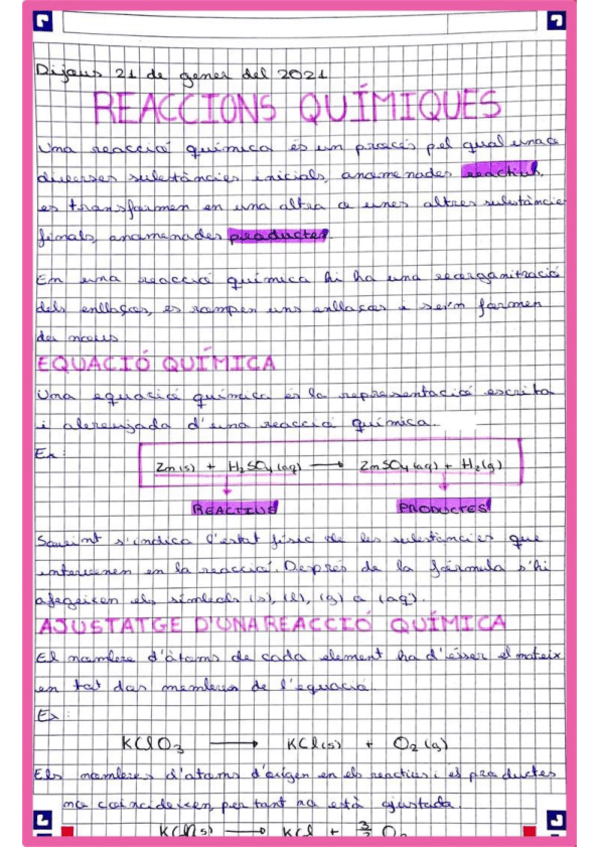 Dijous 21 de gener del 2021
REACCIONS QUÍMIQUES
Una reacció química és un procés pel qual una o
diverses substàncies inicials, anomenades reactius,
es transformen en una altra o unes altres substàncie
finals, anomenades productes.
En una reacció química hi ha una reorganització
dels enllaços, es rompen uns enllaços i se'n formen
de nous
EQUACIÓ QUÍMICA
Una equació química és la representació escrita
i abreujada d'una reacció química.
Ex:
Zn(s) + H₂SO₄(aq) → ZnSO₄(aq) + H₂(g)
REACTIUS PRODUCTES
Sovint s'indica l'estat físic de les substàncies que
intervenen en la reacció. Després de la fórmula s'hi
afegeixen els símbols (s), (l), (g) o (aq).
AJUSTATGE D'UNA REACCIÓ QUÍMICA
El nombre d'àtoms de cada element ha d'ésser el mateix
en tot dos membres de l'equació.
Ex:
KClO₃ → KCl(s) + O₂(g)
Els nombres d'àtoms d'origen en els reactius i els productes
no coincideixen, per tant no està ajustada.
→ KCl + 3/2 O₂